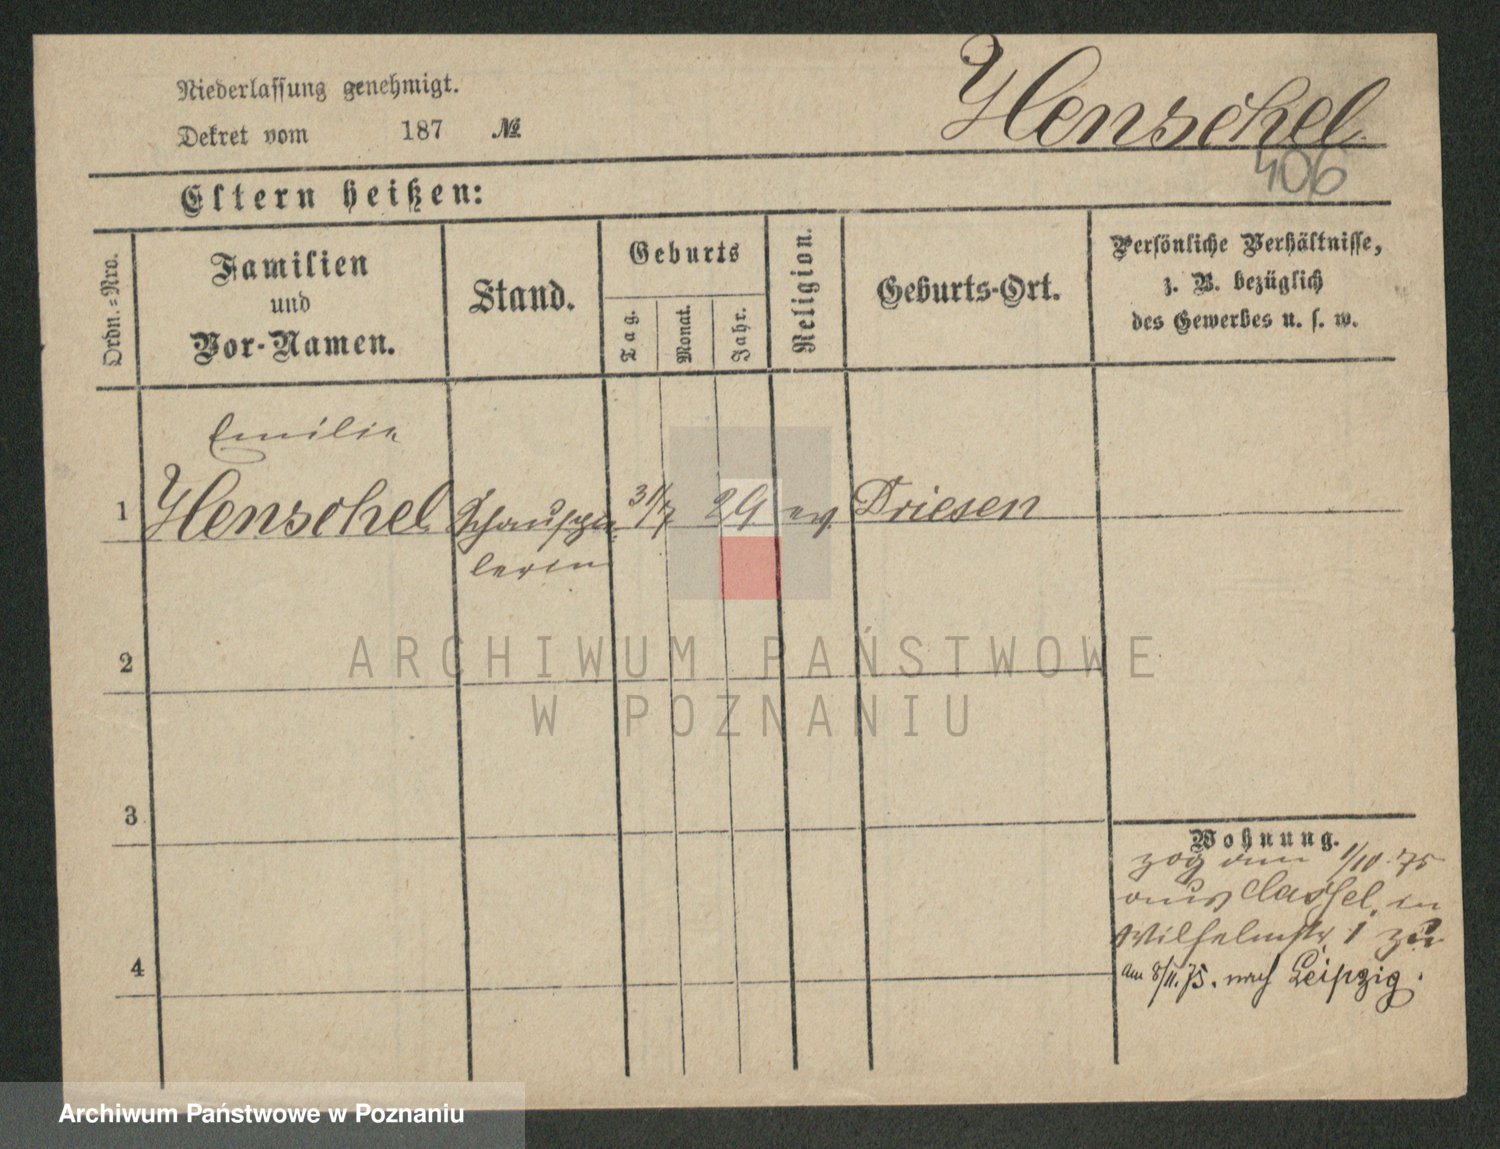 Niederlassung genehmigt.
Dekret vom 187 №
Henschel
406
Eltern heißen:
Ordn.=Nro.
Familien
und
Vor-Namen.
Stand.
Geburts
Tag.
Monat.
Jahr.
Religion.
Geburts-Ort.
Persönliche Verhältnisse,
z. B. bezüglich
des Gewerbes u. s. w.
Emilie
1 Henschel Schauspie- 31/7 29 ev Driesen
lerin
2
ARCHIWUM PAŃSTWOWE
W POZNANIU
3
4
Wohnung.
zog am 1/10. 75
aus Cassel, in
Wilhelmstr. 1 zu
am 8/11. 75. nach Leipzig.
Archiwum Państwowe w Poznaniu